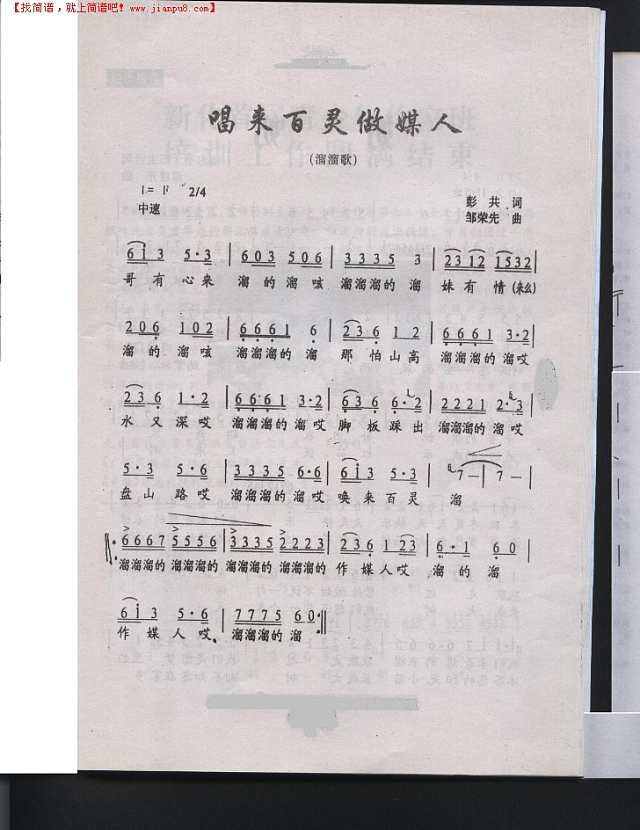 【找简谱，就上简谱吧! www.jianpu8.com】
唱来百灵做媒人
（溜溜歌）
1= F 2/4
彭共 词
中速
邹荣先 曲
6 i 3 5·3 | 6 0 3 5 0 6 | 3 3 3 5 3 | 2 3 1 2 1 5 3 2 |
哥有心来 溜的溜呟 溜溜溜的溜 妹有情(来么)
2 0 6 1 0 2 | 6 6 6 1 6 | 2 3 6 1 2 | 6 6 6 1 3·2 |
溜的溜呟 溜溜溜的溜 那怕山高 溜溜溜的溜哎
2 3 6 1·2 | 6 6 6 1 3·2 | 6 3 6 6·2 | 2 2 2 1 2·3 |
水又深哎 溜溜溜的溜哎 脚板踩出 溜溜溜的溜哎
5·3 5·3 | 3 3 3 5 6·6 | 6 i 3 5·3 | 7 — | 7 — |
盘山路哎 溜溜溜的溜哎 唤来百灵 溜
6 6 6 7 5 5 5 6 | 3 3 3 5 2 2 2 3 | 2 3 6 1 2 3 | 6·1 6 0 |
溜溜溜的溜溜溜的溜溜溜的溜溜溜的 作媒人哎 溜的溜
6 i 3 5·6 | 7 7 7 5 6 0 :||
作媒人哎 溜溜溜的溜